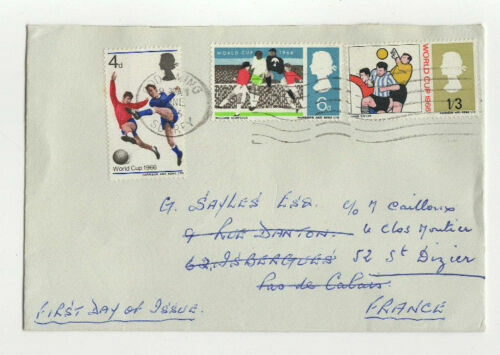 4d
World Cup 1966
HARRISON AND SONS LTD
WORLD CUP 1966
6d
HARRISON AND SONS LTD
WORLD CUP 1966
1'3
HARRISON AND SONS LTD
SURREY
G. SAYLES ESQ. c/o M Cailloux
9 RUE DANTON. 4 Clos Moutier
62, ISBERGUES 52 St Dizier
Pas de Calais.
FIRST DAY OF ISSUE. FRANCE